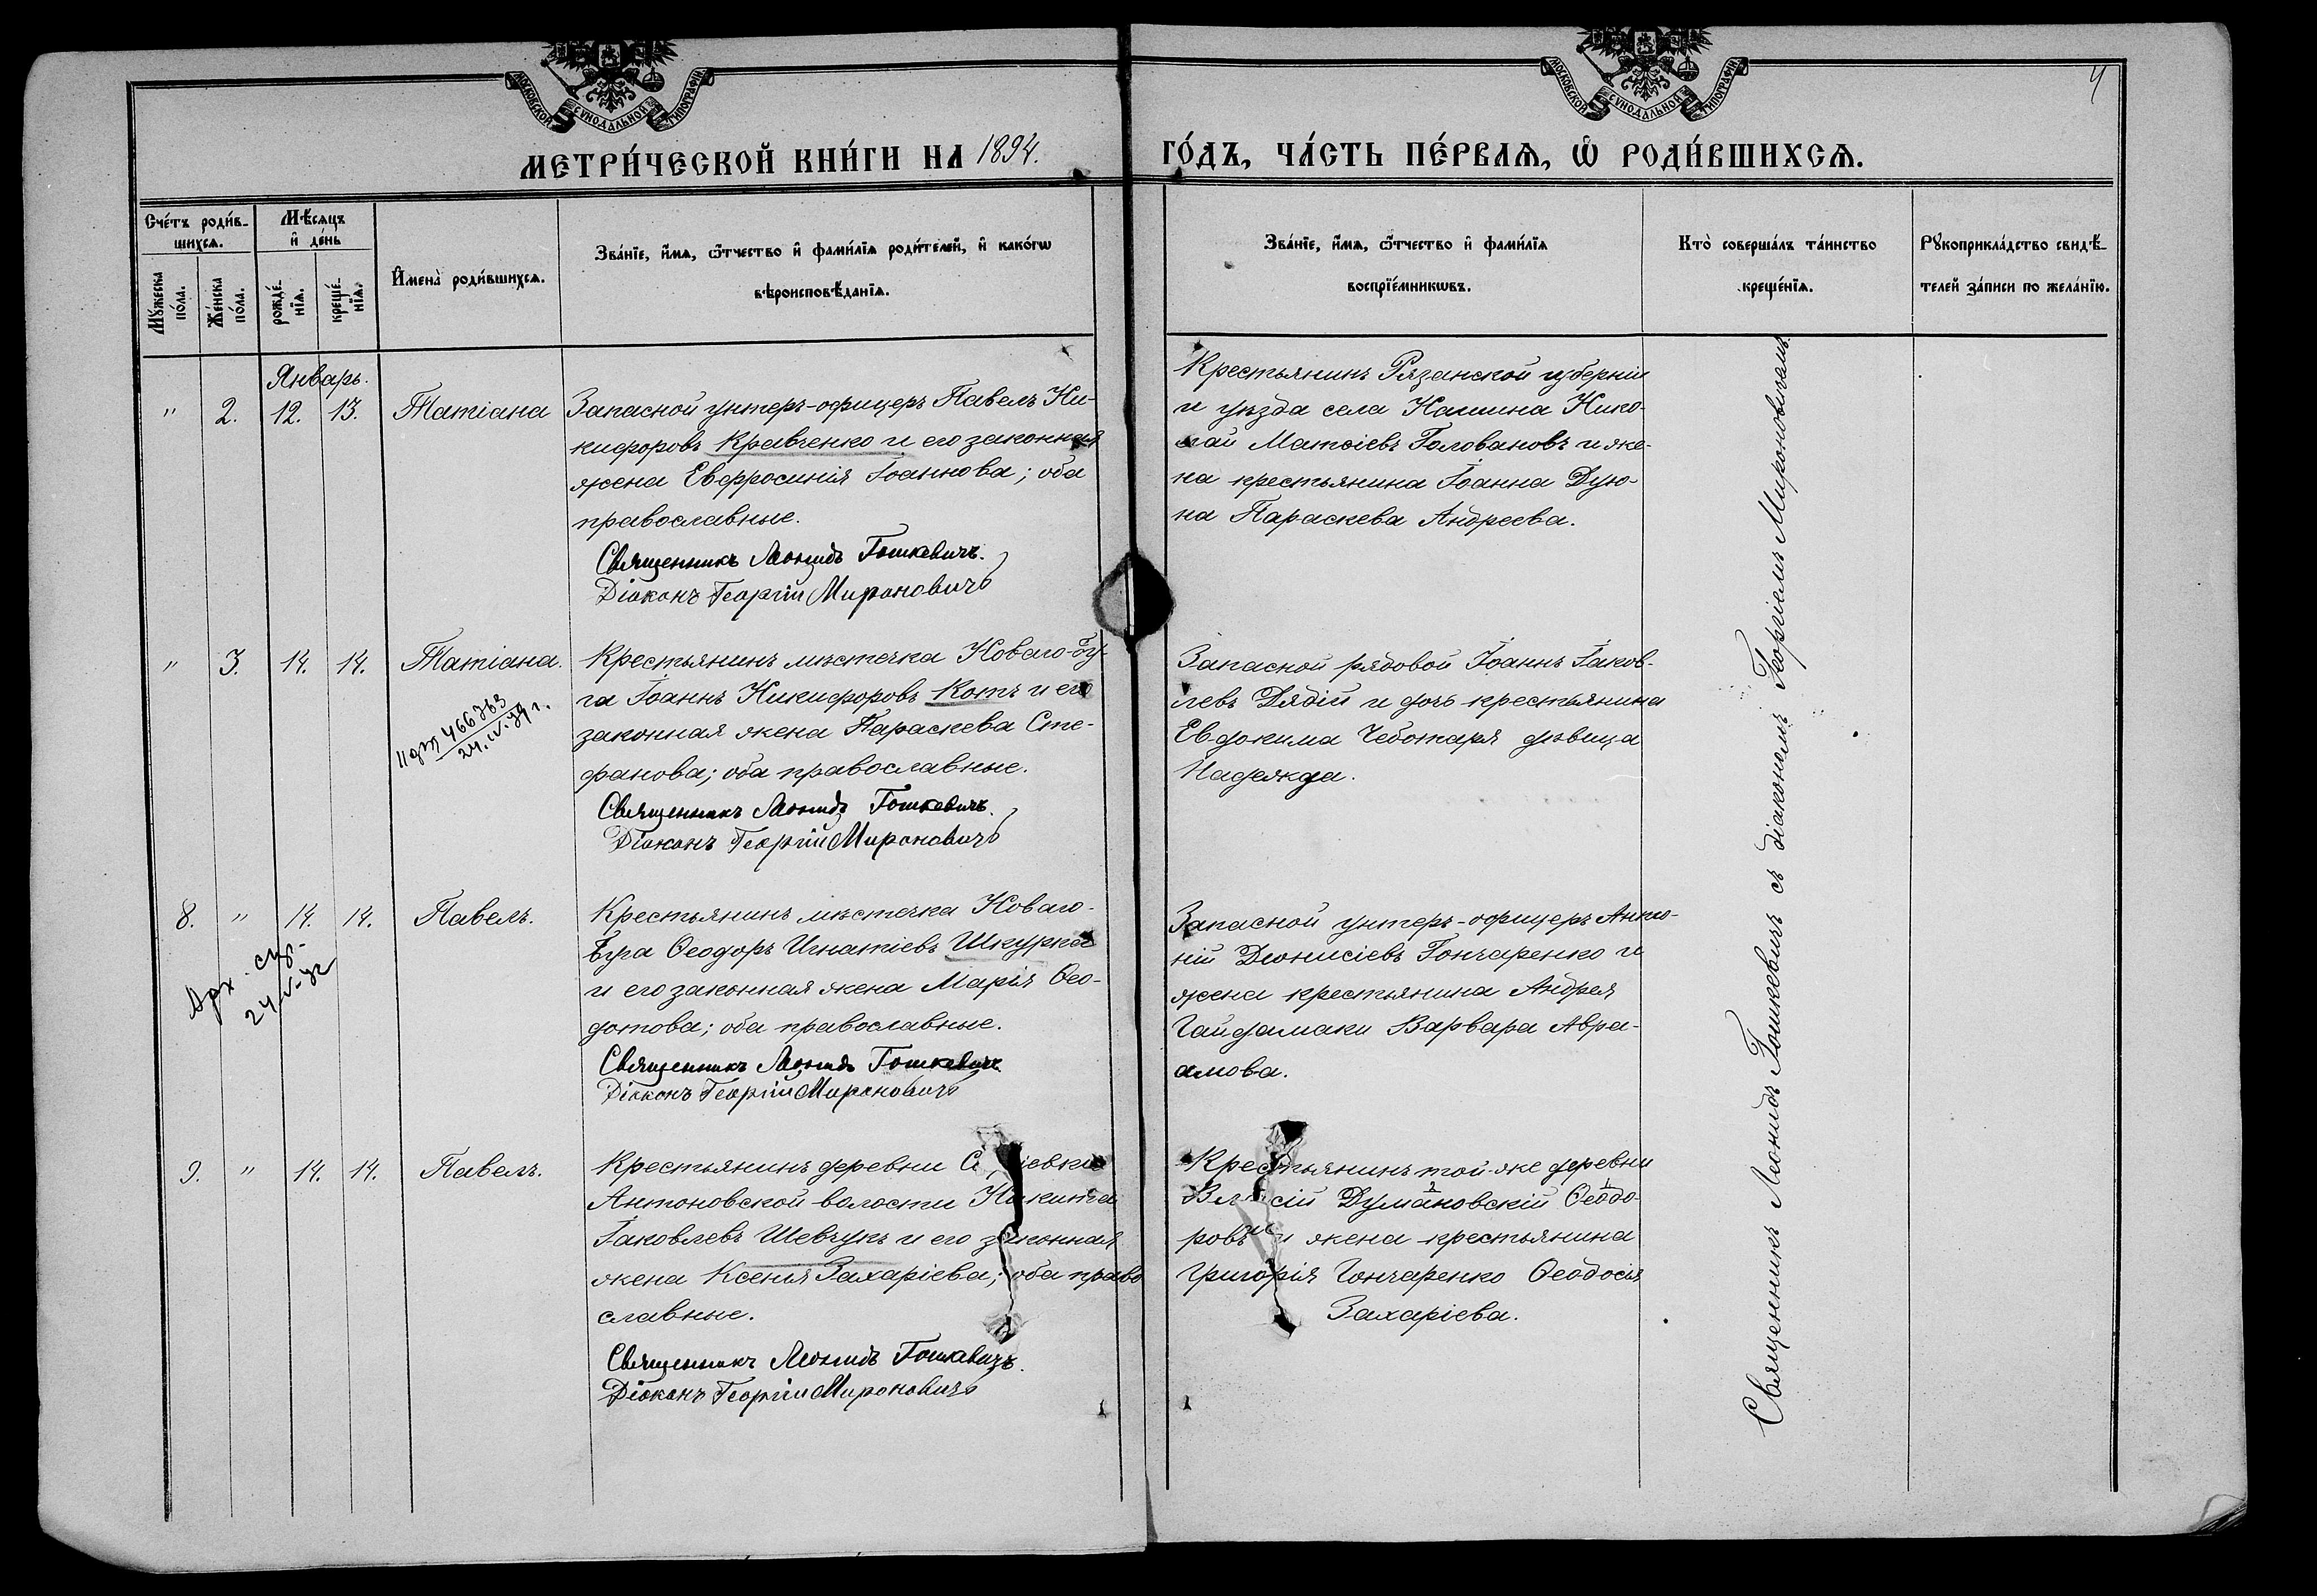 МОСКОВСКОЙ СѴНОДАЛЬНОЙ ТИПОГРАФІИ
МОСКОВСКОЙ СѴНОДАЛЬНОЙ ТИПОГРАФІИ
4
МЕТРИ́ЧЕСКОЙ КНИ́ГИ НА 1894.
ГО́ДЪ, ЧА́СТЬ ПЕ́РВАѦ, Ѡ҆ РОДИ́ВШИХСѦ.
Сче́тъ роди́в-
шихсѧ.
Мѣ́сѧцъ
и҆ де́нь
Мꙋ́жеска
по́ла.
Же́нска
по́ла.
рожде́-
нїѧ.
креще́-
нїѧ.
И҆мена̀ роди́вшихсѧ.
Зва́нїе, и҆́мѧ, ѻ҆́тчество и҆ фами́лїѧ роди́телей, и҆ како́гѡ
вѣроисповѣ́данїѧ.
Зва́нїе, и҆́мѧ, ѻ҆́тчество и҆ фами́лїѧ
воспрїе́мникѡвъ.
Кто̀ соверша́лъ та́инство
креще́нїѧ.
Рꙋкоприкла́дство свидѣ́-
телей за́писи по жела́нїю.
Январь.
" 2. 12. 13. Татіана
Запасной унтеръ-офицеръ Павелъ Ни-
кифоровъ Кравченко и его законная
жена Евфросинія Іоаннова; оба
православные.
Священникъ Леонидъ Гошкевичъ.
Діаконъ Георгій Мироновичъ
Крестьянинъ Рязанской губерніи
и уѣзда села Кашина Нико-
лай Матѳіевъ Головановъ и же-
на крестьянина Іоанна Дую-
на Параскева Андреева.
" 3. 14. 14. Татіана.
466763
24.IV.39 г.
Крестьянинъ мѣстечка Новаго-Бу-
га Іоаннъ Никифоровъ Котъ и его
законная жена Параскева Сте-
фанова; оба православные.
Священникъ Леонидъ Гошкевичъ.
Діаконъ Георгій Мироновичъ
Запасной рядовой Іоаннъ Іаков-
левъ Дядій и дочь крестьянина
Евдокима Чеботаря дѣвица
Надежда.
8. " 14. 14. Павелъ.
Крестьянинъ мѣстечка Новаго-
Буга Ѳеодоръ Игнатіевъ Шкурка
и его законная жена Марія Ѳео-
дотова; оба православные.
Священникъ Леонидъ Гошкевичъ
Діаконъ Георгій Мироновичъ
Запасной унтеръ-офицеръ Анто-
ній Діонисіевъ Гончаренко и
жена крестьянина Андрея
Гайдамаки Варвара Авра-
амова.
9. " 14. 14. Павелъ.
Крестьянинъ деревни
Антоновской волости Никита
Іаковлевъ Шевчукъ и его законная
жена Ксенія Захаріева; оба право
славные.
Священникъ Леонидъ Гошкевичъ.
Діаконъ Георгій Мироновичъ
Крестьянинъ той-же деревни
Думановскій Ѳеодо-
ровъ и жена крестьянина
Григорія Гончаренко Ѳеодосія
Захаріева.
Священникъ Леонидъ Гошкевичъ съ діакономъ Георгіемъ Мироновичемъ.